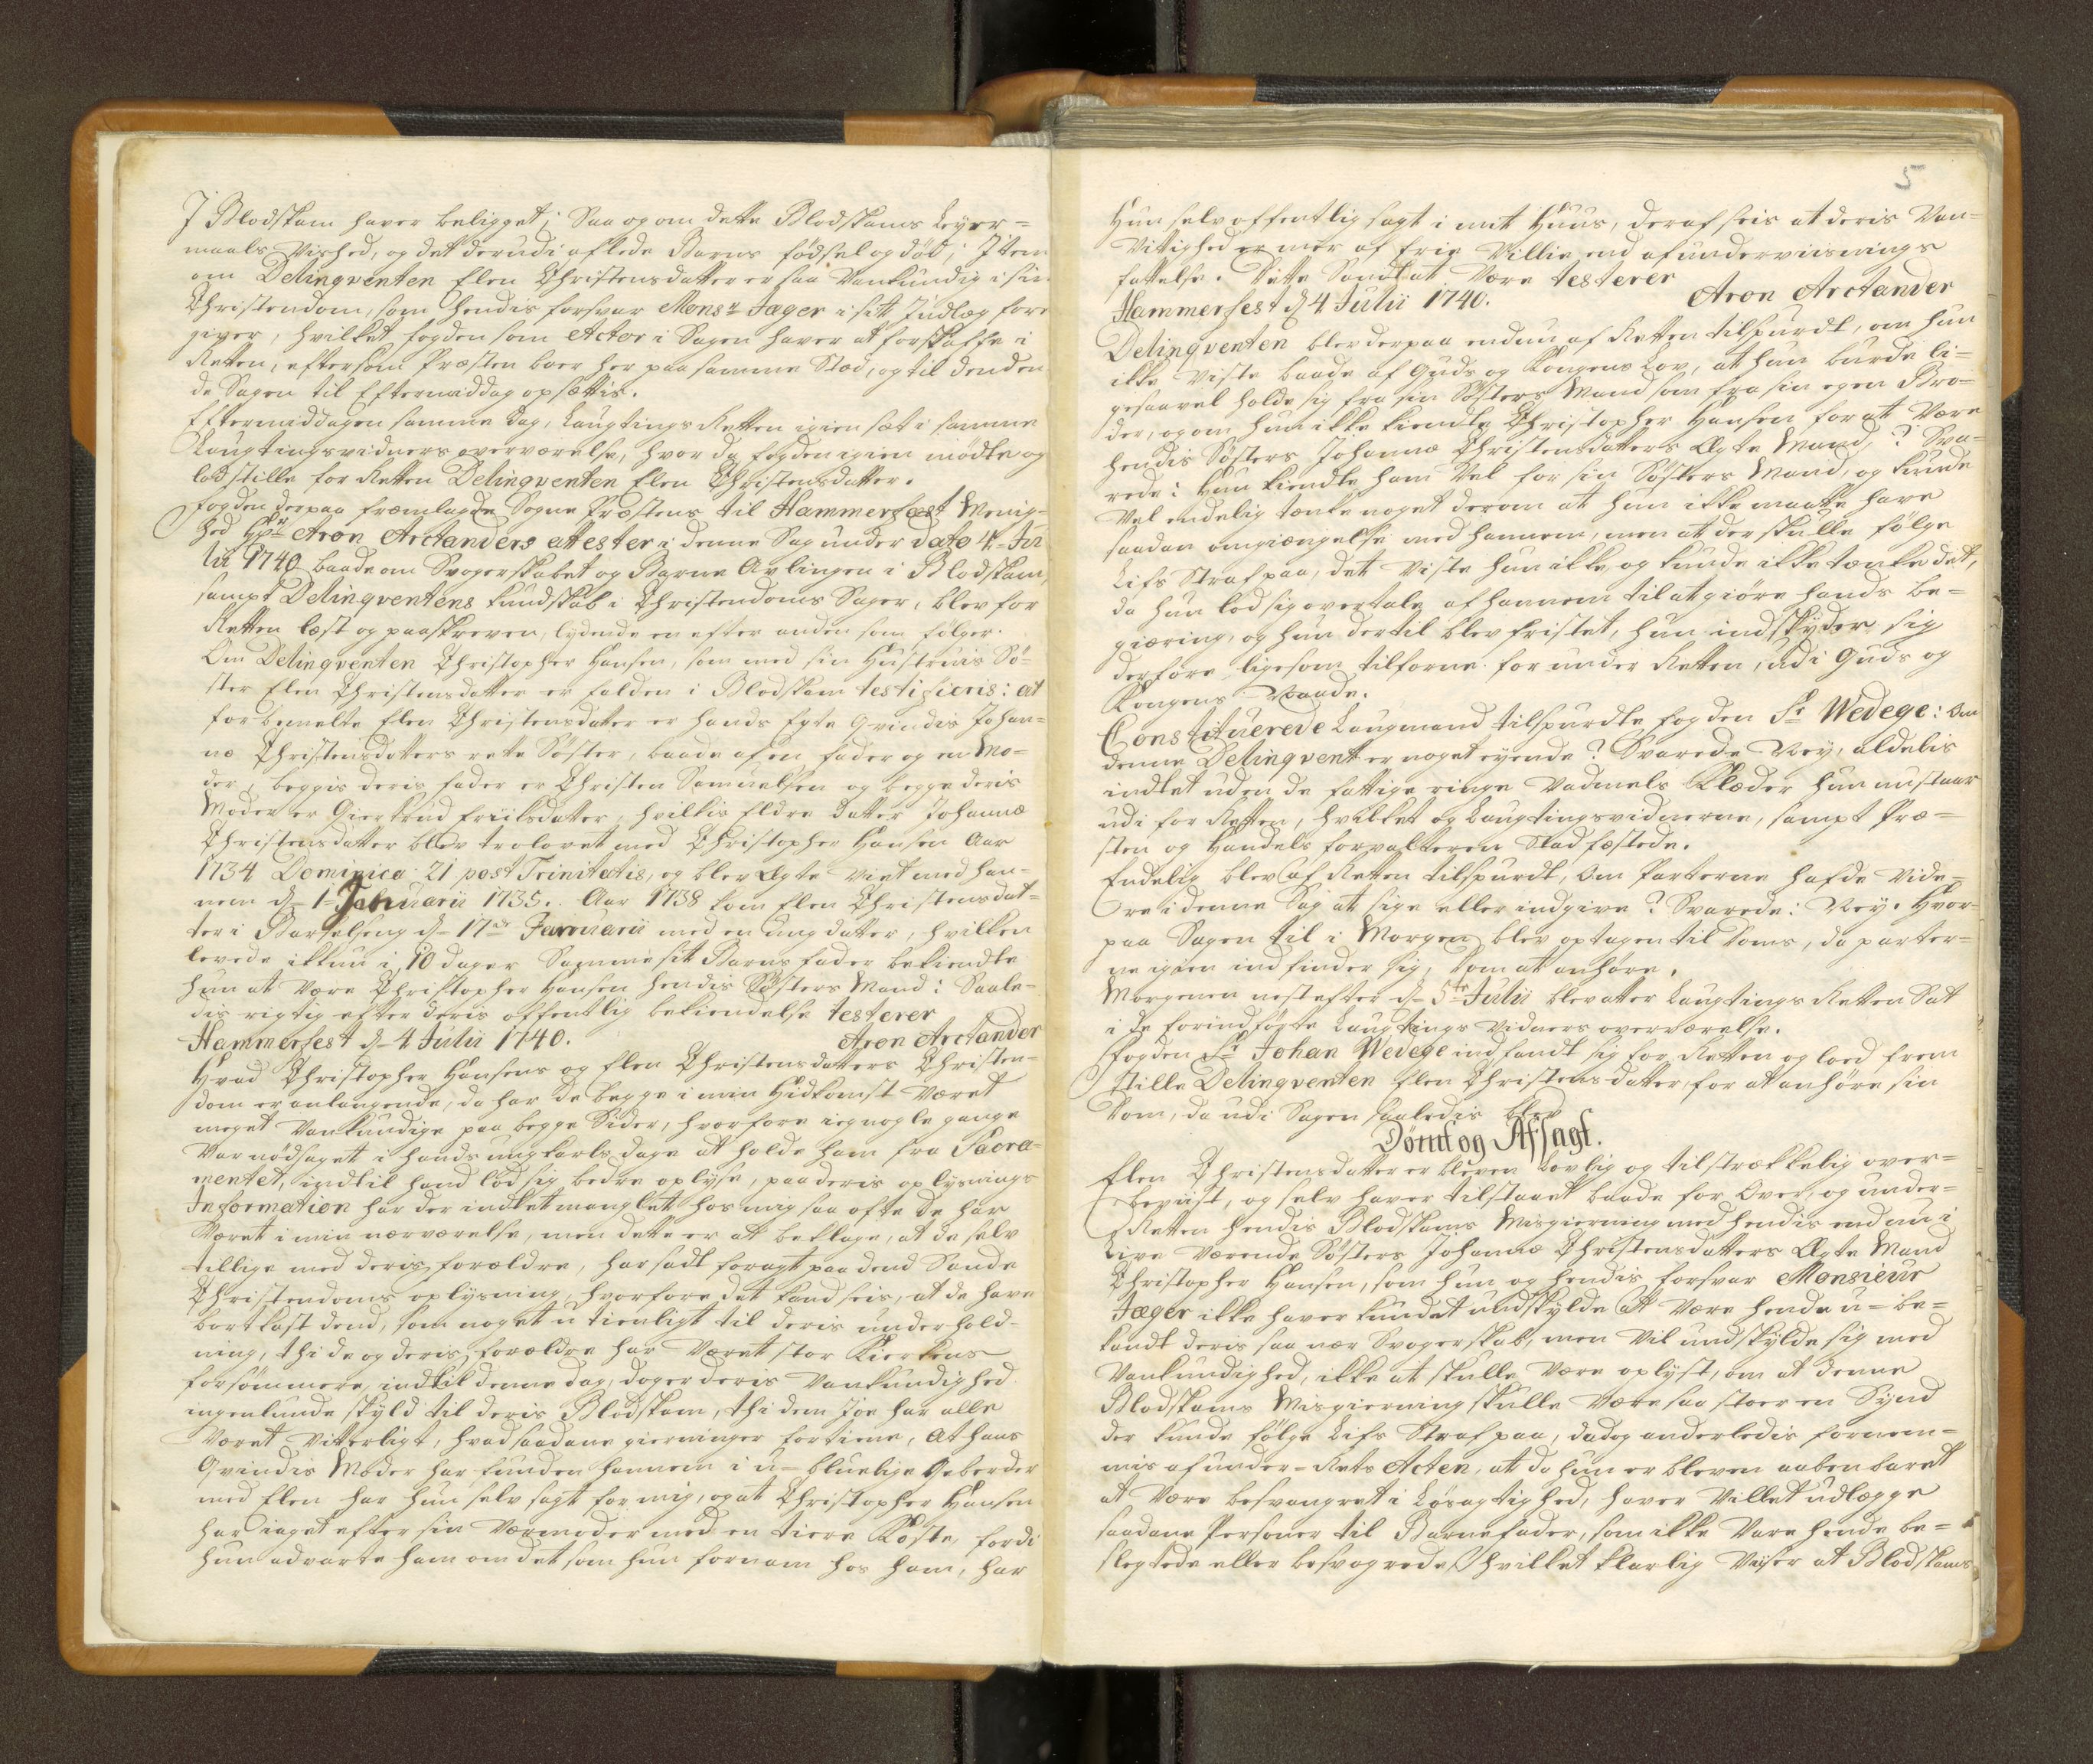 J Blodskam haver beligget; Saa og om dette Blodskams Leyer=
maals Vished, og det derudi aflede Barns födsel og död; Jtem
om Delinqventen Elen Christensdatter er saa Vankundig i sin
Christendom, som hendis forsvar Monsr Jæger i sitt Indlæg fore
giver, hvilket fogden som Actor i Sagen haver at forskaffe i
Retten, eftersom Præsten boer her paa samme Stæd, og til den en
de Sagen til Eftermiddag opsættis.
Eftermiddagen samme dag, Laugtings Retten igien sat i samme
Laugtingsvidners overværelse, hvor da fogden igien mödte og
lod stille for Retten Delinqventen Elen Christensdatter.
Fogden derpaa fremlagde Sogne Præstens til Hammerfest Menig-
hed Hr. Aron Arctanders attester i denne Sag under dato 4. Ju
lii 1740 baade om Svogerskabet og Barne Avlingen i Blodskam,
sampt Delinqventens kundskab i Christendoms Sager, blev for
Retten læst og paaskreven, lydende en efter anden som fölger.
Om Delinqventen Christopher Hansen, som med sin Hustruis Sö=
ster Elen Christensdatter er falden i Blodskam testificeris: at
forbemelte Elen Christensdatter er hands Egte Qvindis Johan=
næ Christensdatters rette Söster, baade af en fader og en Mo=
der, beggis deris fader er Christen Samuelsen og begge deris
Moder er Giertrud friiksdatter, hvilkis Eldre datter Johanne
Christensdatter blev trolovet med Christopher Hansen Aar
1734 Dominica 21 post Trinitatis, og blev Ægte Viet med han=
nem d. 1. Februarii 1735. Aar 1738 kom Elen Christensdat=
ter i Barselseng d. 17de Januarii med en ung datter, hvilken
levede ikkun i 10 dager Samme sit Barns fader bekiendte
hun at være Christopher Hansen hendis Sösters Mand: Saale=
dis rigtig efter deris offentlig bekiendelse testerer
Hammerfest d. 4 Julii 1740. Aron Arctander
Hvad Christopher Hansens og Elen Christensdatters Christen=
dom er anlangende, da har de begge i min Hidkomst Været
meget Vankundige paa begge Sider, hvorfore ieg nogle gange
Var nödsaget i hands ungkarls dage at holde ham fra Sacra=
mentet, indtil hand lod sig bedre oplyse, paa deris oplysnings
Information har der indtet manglet hos mig saa ofte de har
Været i min nærværelse, men dette er at beklage, at de selv
tillige med deris forældre, har sadt foragt paa dend Sande
Christendoms oplysning, hvorfore det kand seis, at de have
bortkast dend, som noget utienligt til deris underhold-
ning, thi de og deris forældre har Været stor Kierkens
forsömmere, indtil denne dag, dog er deris Vankundighed
ingenlunde skyld til deris Blodskam, thi dem Joe har alle
Været Vitterligt, hvad saadane gierninger fortiene, At hans
Qvindis Moder har funden hannem i u=bluelige Geberder
med Elen har hun selv sagt for mig, og at Christopher Hansen
har iaget efter sin Værmoder med en tiere Koste, fordi
hun advarte ham om det som hun fornam hos ham, har
5
Hun selv offentlig sagt i mit Huus, deraf seis at deris Van-
Vittighed er mer af frie Villie end af underviisnings
fattelse. Dette Sandt at Være testerer
Hammerfest d. 4 Julii 1740. Aron Arctander
Delinqventen blev derpaa endnu af Retten tilspurdt, om hun
ikke Viste baade af Guds og Kongens Lov, at hun burde li=
gesaavel holde sig fra sin Sösters Mand som fra sin egen Bro=
der, og om hun ikke kiendte Christopher Hansen for at Være
hendis Sösters Johanne Christensdatters Ægte Mand? Sva=
rede: Hun kiendte ham Vel for sin Sösters Mand, og kunde
Vel endelig tænke noget derom at hun ikke maatte have
saadan omgiængelse med hannem, men at der skulle fölge
Lifs Straf paa, det Viste hun ikke og kunde ikke tænke det,
da hun lod sig overtale af hannem til at giöre hands be=
giæring, og hun dertil blev fristet, hun indskyder sig
derfore ligesom tilforne for under Retten, udi Guds og
Kongens Naade.
Constituerede Laugmand tilspurdte fogden Sr. Wedege: Om
denne Delinqvent er noget eyende? Svarede Ney, aldelis
indtet uden de fattige ringe Vadmels Klæder hun nu staar
udi for Retten, hvilket og Laugtingsvidnerne, sampt Præ=
sten og Handels forvalteren Stadfæstede.
Endelig blev af Retten tilspurdt, Om Parterne hafde Vide=
re i denne Sag at sige eller indgive? Svarede: Ney. Hvor=
paa Sagen til i Morgen blev optagen til Doms, da parter=
ne igien indfinder sig, Dom at anhöre.
Morgenen nestefter d. 5te Julii blev atter Laugtings Retten Sat
i de forindförte Laugtings Vidners overværelse.
Fogden Sr. Johan Wedege indfandt sig for Retten og loed frem
stille Delinqventen Elen Christensdatter, for at anhöre sin
Dom, da udi Sagen saaledis blev
Dömt og Afsagt.
Elen Christensdatter er bleven Lovlig og tilstrækkelig over=
beviist, og selv haver tilstaaet baade for Over, og under=
Retten hendis Blodskams Misgierning med hendis endnu i
Live Værende Sösters Johanne Christensdatters Ægte Mand
Christopher Hansen, som hun og hendis forsvar Monsieur
Jæger ikke haver kundet undskylde Att Være hende u=be=
kandt deris saa nær Svogerskab, men Vil undskylde sig med
Vankundighed, ikke at skulle Være oplyst, om at denne
Blodskams Misgierning skulle Være saa stoer en Synd
der kunde fölge Lifs Straf paa, da dog anderledis fornem=
mis af under=Rets Acten, at da hun er bleven aabenbaret
at Være besvangret i Lösagtighed, haver Villet udlegge
saadane Personer til Barnefader, som ikke Vare hende be=
slegtede eller besvogrede, hvilket klarlig Viser at Blodskams